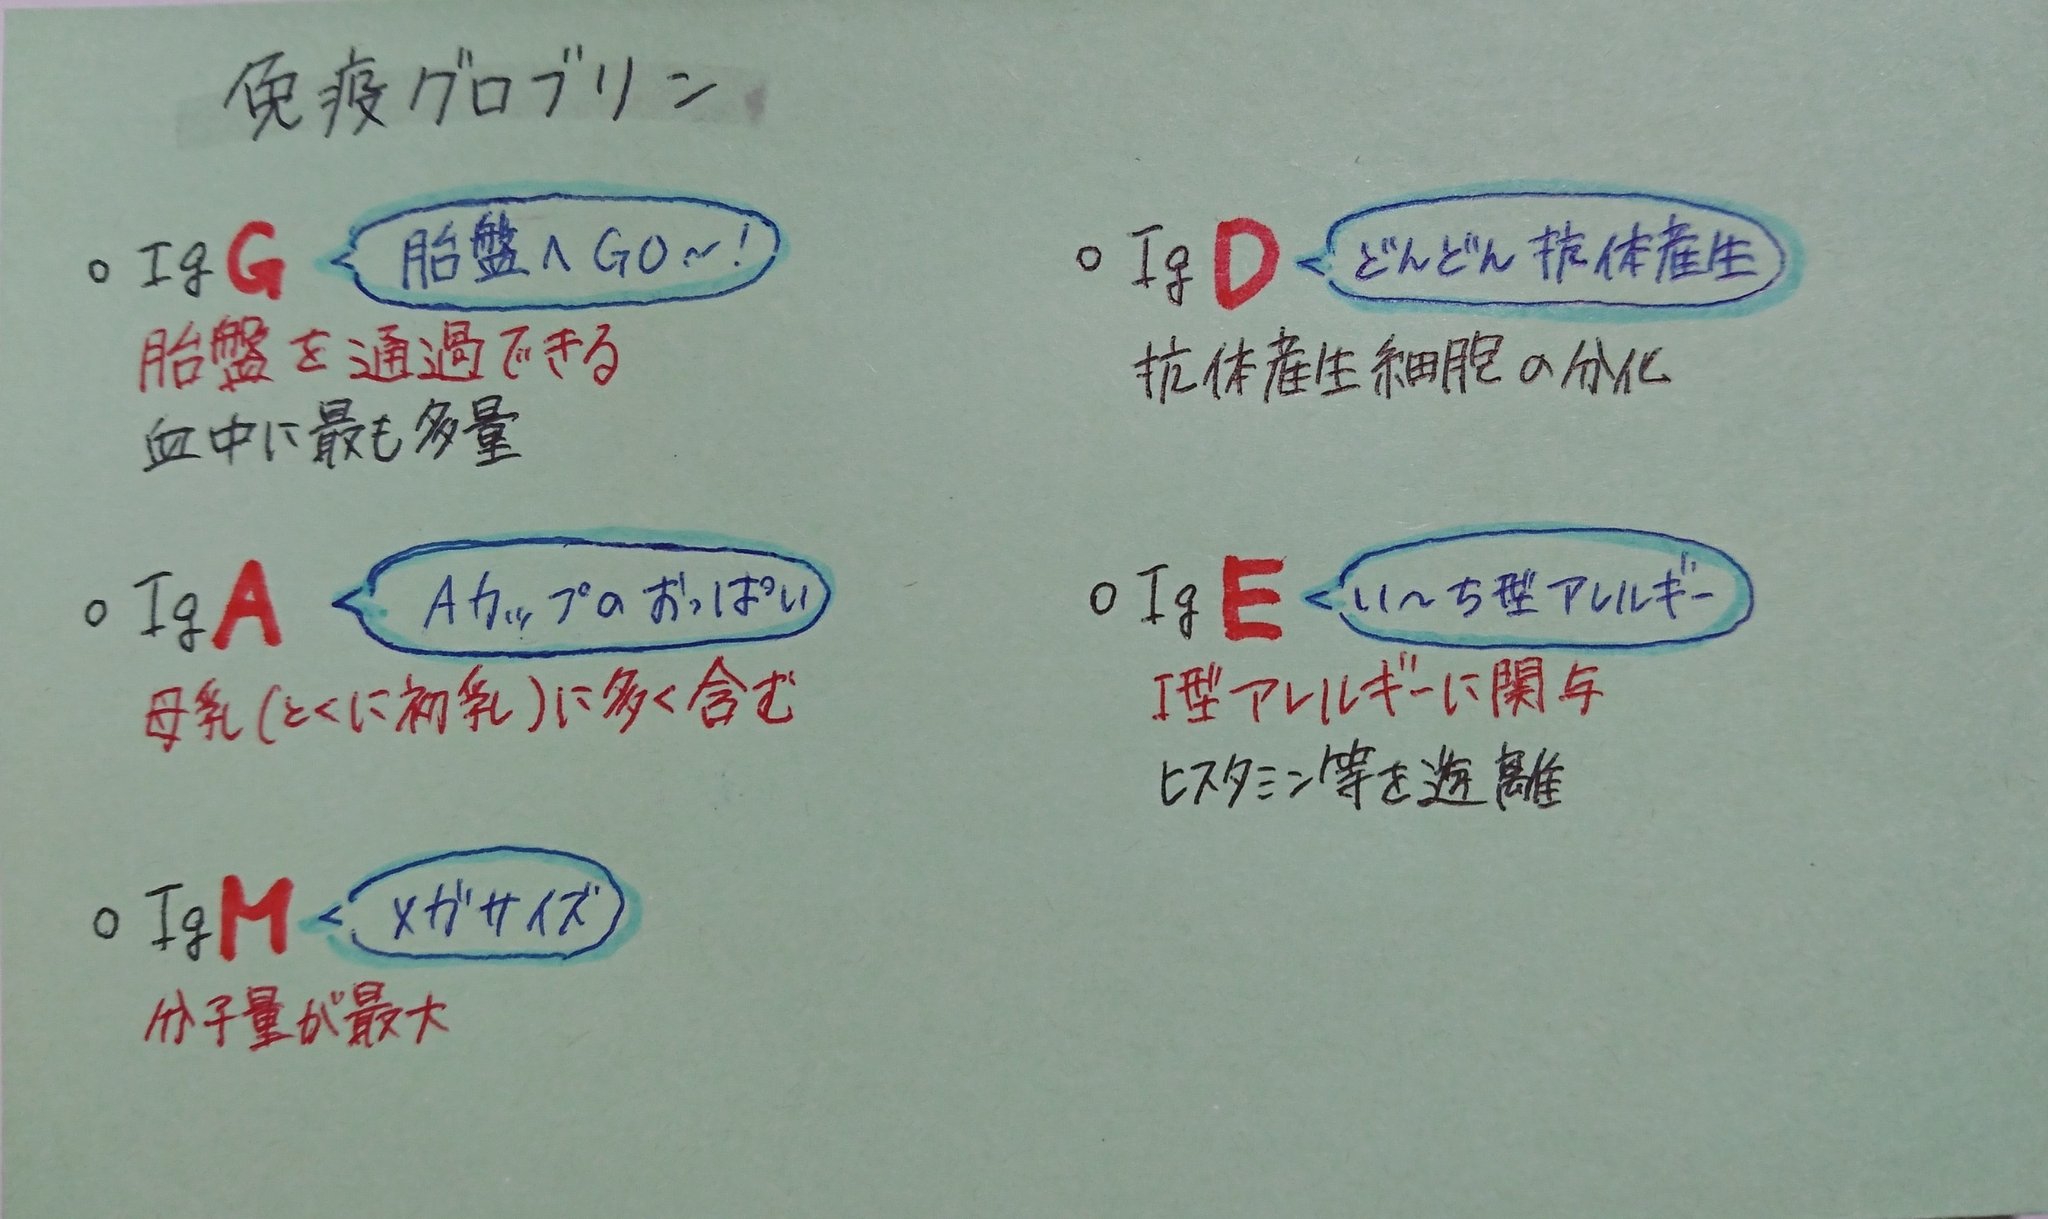 免疫グロブリン
○ IgG 胎盤へGO～!
胎盤を通過できる
血中に最も多量
○ IgA Aカップのおっぱい
母乳(とくに初乳)に多く含む
○ IgM メガサイズ
分子量が最大
○ IgD どんどん抗体産生
抗体産生細胞の分化
○ IgE い～ち型アレルギー
I型アレルギーに関与
ヒスタミン等を遊離